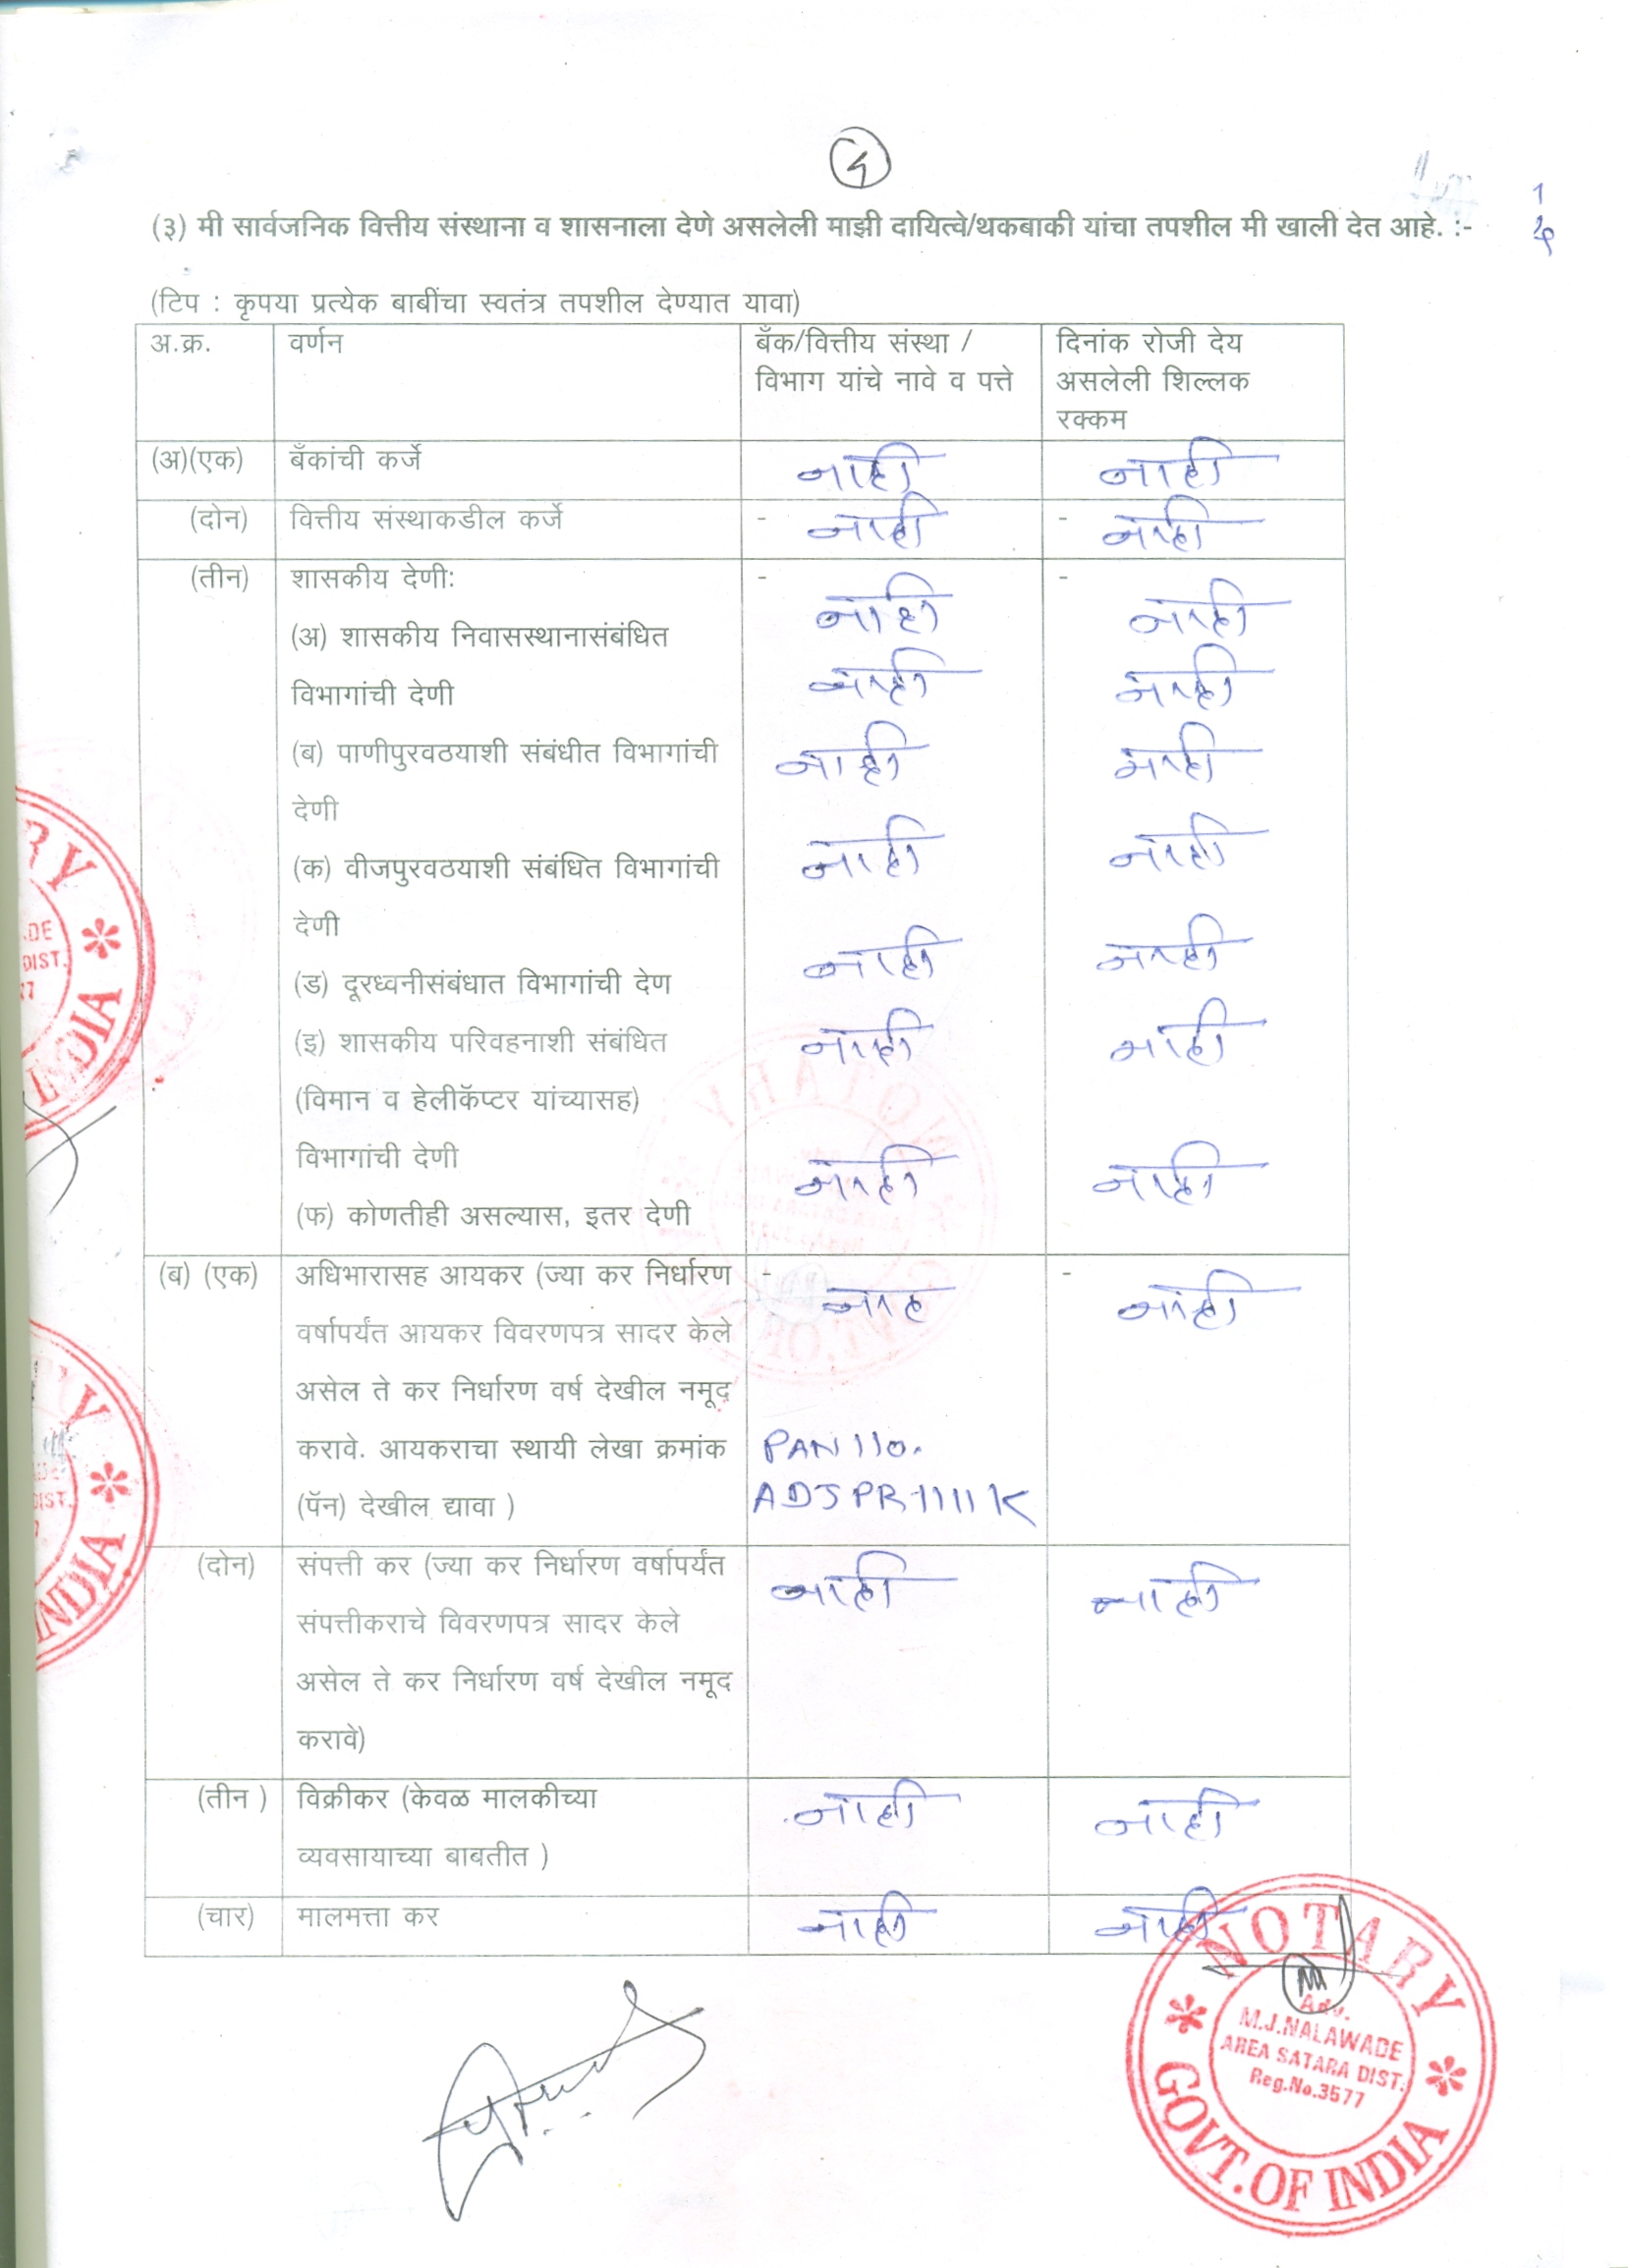 ५
(३) मी सार्वजनिक वित्तीय संस्थाना व शासनाला देणे असलेली माझी दायित्वे/थकबाकी यांचा तपशील मी खाली देत आहे. :-
(टिप : कृपया प्रत्येक बाबींचा स्वतंत्र तपशील देण्यात यावा)
अ.क्र. वर्णन बँक/वित्तीय संस्था / दिनांक रोजी देय
विभाग यांचे नावे व पत्ते असलेली शिल्लक
रक्कम
(अ)(एक) बँकांची कर्जे नाही नाही
(दोन) वित्तीय संस्थाकडील कर्जे - नाही - नाही
(तीन) शासकीय देणी: - -
नाही नाही
(अ) शासकीय निवासस्थानासंबंधित
विभागांची देणी नाही नाही
(ब) पाणीपुरवठयाशी संबंधीत विभागांची नाही नाही
देणी
(क) वीजपुरवठयाशी संबंधित विभागांची नाही नाही
देणी
(ड) दूरध्वनीसंबंधात विभागांची देण नाही नाही
(इ) शासकीय परिवहनाशी संबंधित नाही नाही
(विमान व हेलीकॅप्टर यांच्यासह)
विभागांची देणी
(फ) कोणतीही असल्यास, इतर देणी नाही नाही
(ब) (एक) अधिभारासह आयकर (ज्या कर निर्धारण - नाह - नाही
वर्षापर्यंत आयकर विवरणपत्र सादर केले
असेल ते कर निर्धारण वर्ष देखील नमूद
करावे. आयकराचा स्थायी लेखा क्रमांक PAN No.
(पॅन) देखील द्यावा ) ADJPR1111K
(दोन) संपत्ती कर (ज्या कर निर्धारण वर्षापर्यंत नाही नाही
संपत्तीकराचे विवरणपत्र सादर केले
असेल ते कर निर्धारण वर्ष देखील नमूद
करावे)
(तीन ) विक्रीकर (केवळ मालकीच्या नाही नाही
व्यवसायाच्या बाबतीत )
(चार) मालमत्ता कर नाही नाही
NOTARY
Adv.
M.J.NALAWADE
AREA SATARA DIST.
Reg.No.3577
GOVT.OF INDIA